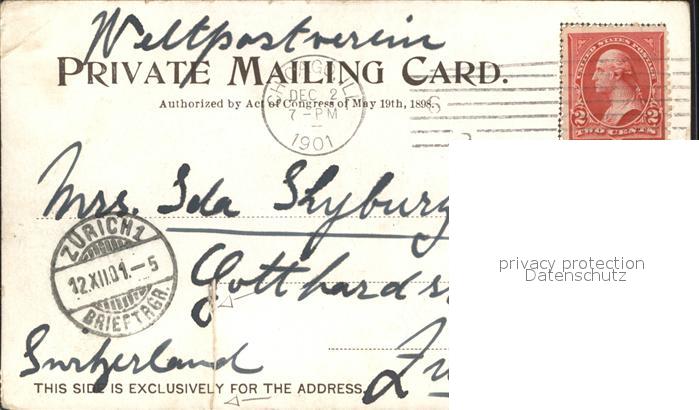 Weltpostverein
PRIVATE MAILING CARD.
Authorized by Act of Congress of May 19th, 1898.
CHICAGO, ILL.
DEC 2
7-PM
1901
UNITED STATES POSTAGE
2 2
TWO CENTS
Mrs. Ida Shyburg
ZÜRICH 1
12.XII.01.-5
BRIEFTRGR.
Gotthards
privacy protection
Datenschutz
Switzerland Zu
THIS SIDE IS EXCLUSIVELY FOR THE ADDRESS.